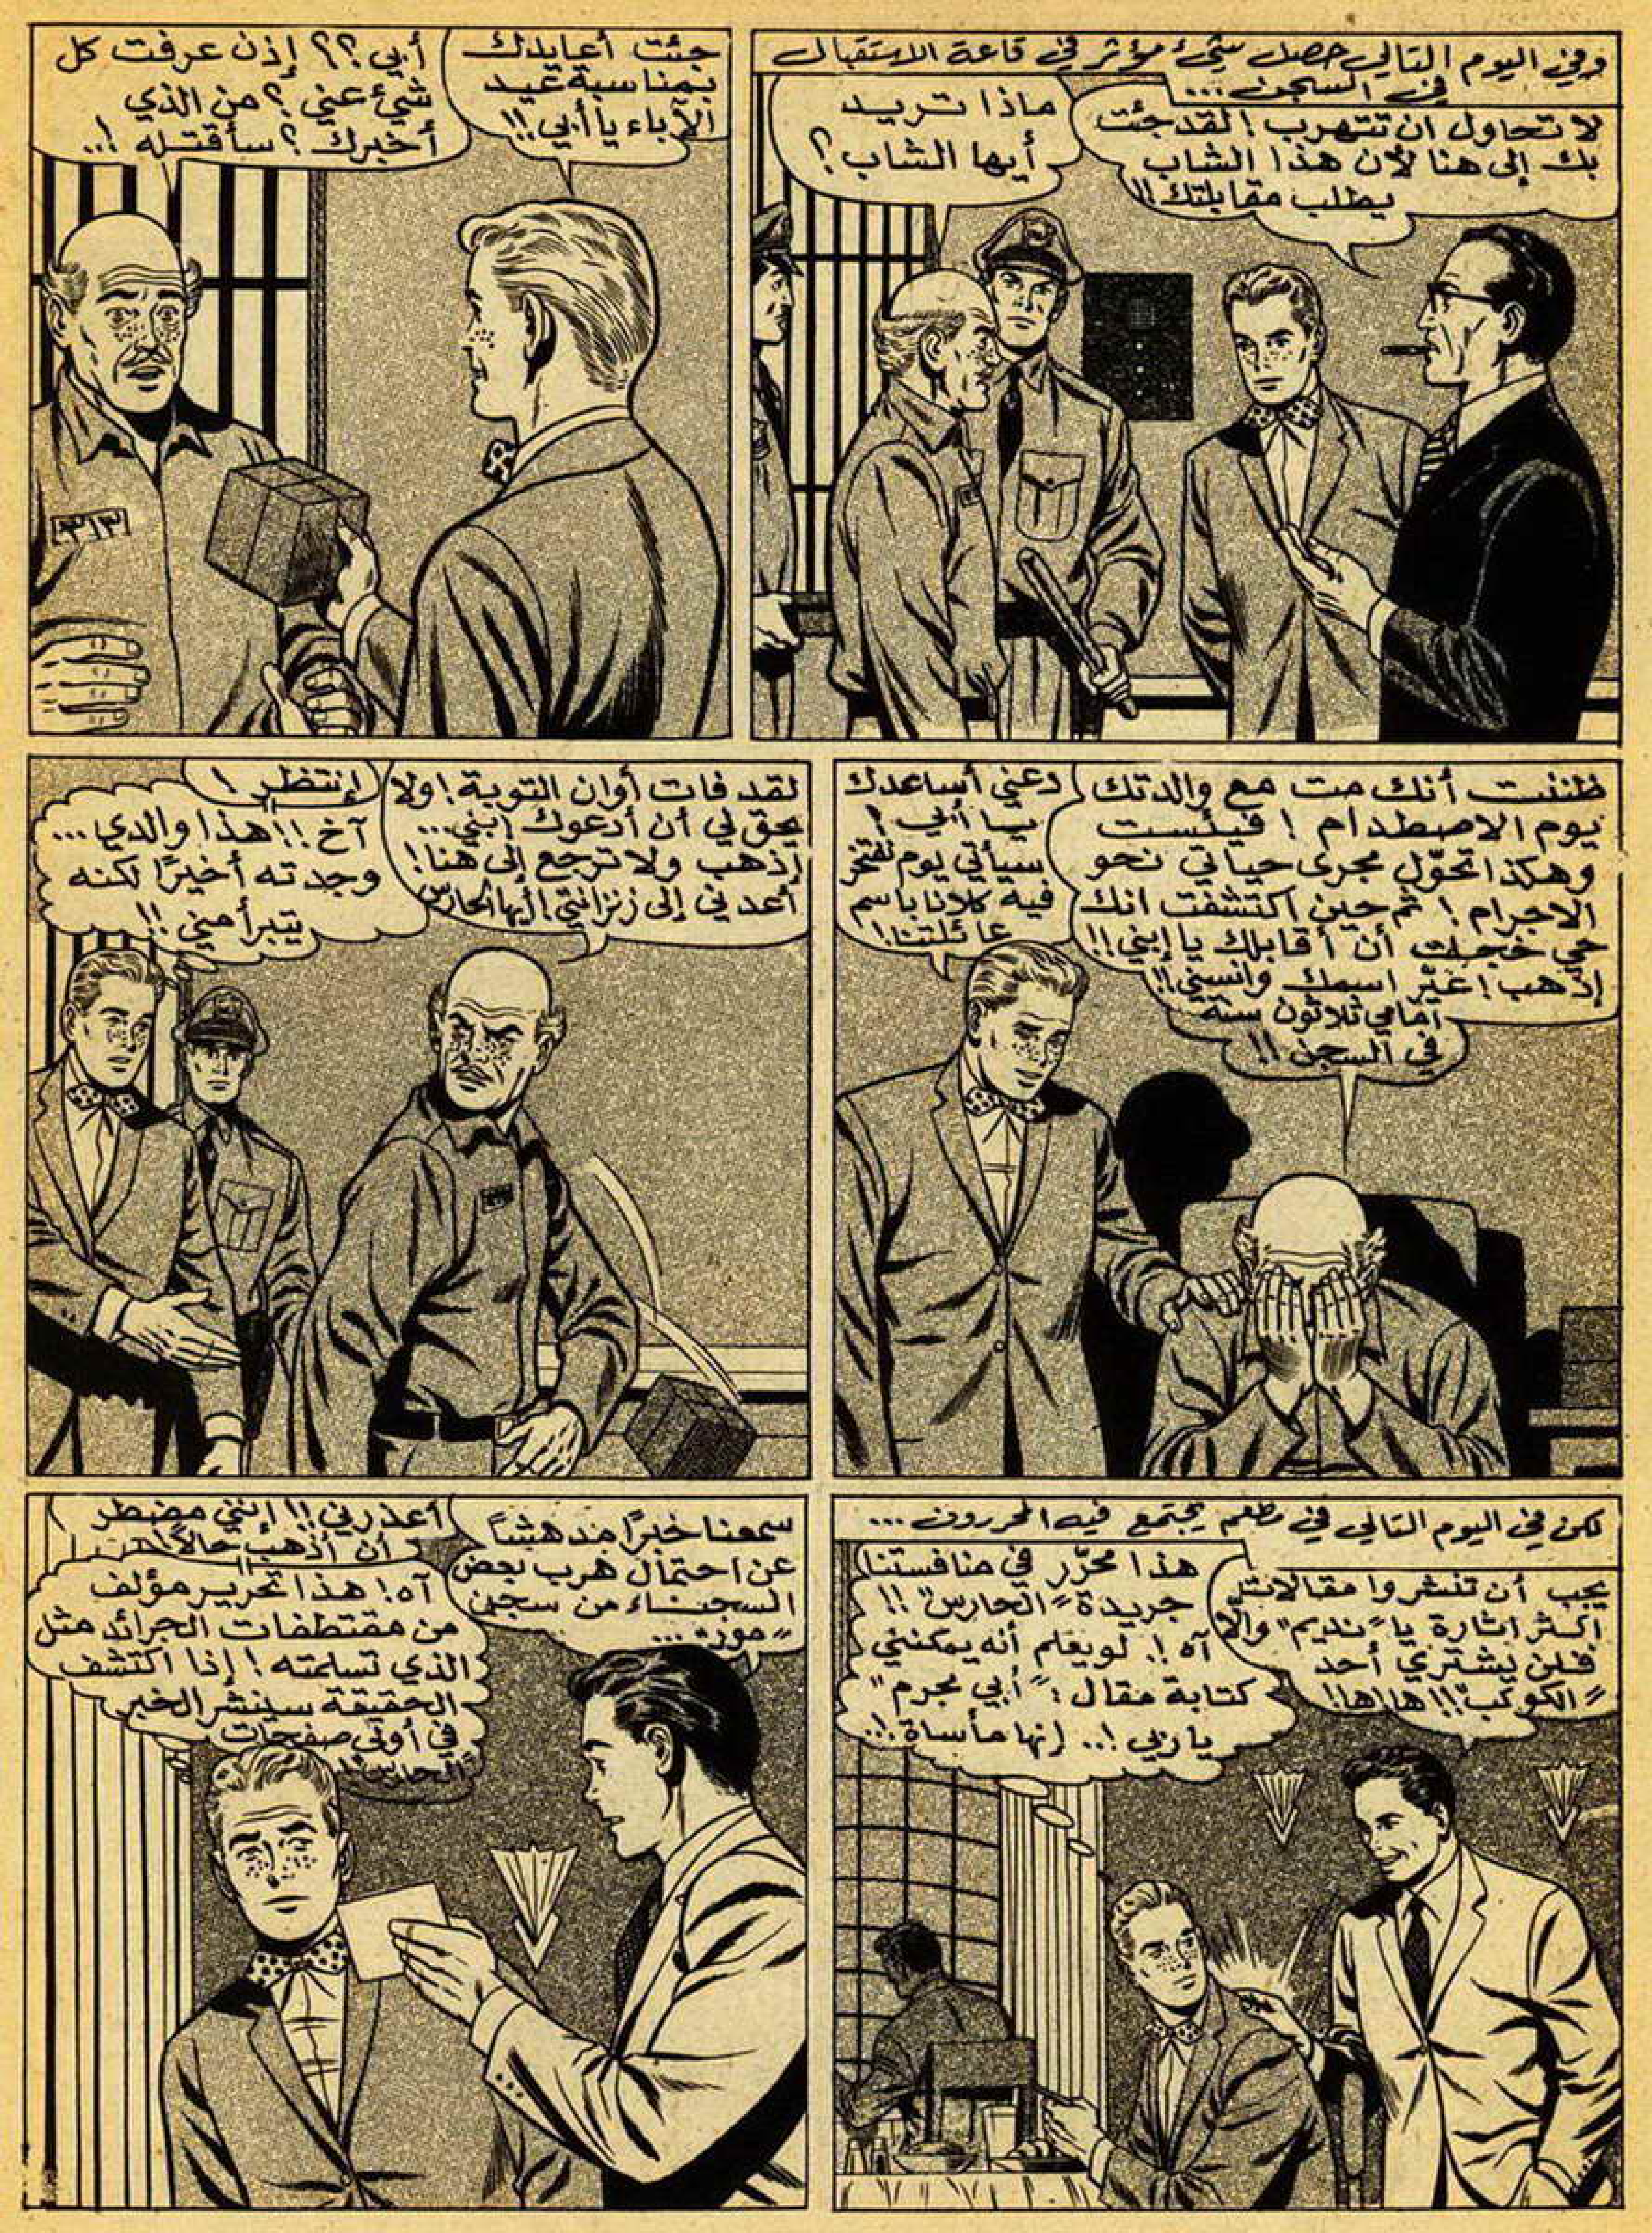 وفي اليوم التالي حصل شيئ مؤثر في قاعة الاستقبال
في السجن...
لا تحاول ان تتهرب! لقد جئت
بك إلى هنا لأن هذا الشاب
يطلب مقابلتك!!
ماذا تريد
أيها الشاب؟
جئت أعايدك
بمناسبة عيد
الآباء يا أبي!!
أبي؟؟ إذن عرفت كل
شيئ عني؟ من الذي
أخبرك؟ سأقتله!..
٣١٣
ظننت أنك مت مع والدتك
يوم الاصطدام! فيئست
وهكذا تحوّل مجرى حياتي نحو
الاجرام! ثم حين اكتشفت انك
حي خجلت أن أقابلك يا إبني!!
إذهب! غيّر اسمك وانسني!!
أمامي ثلاثون سنة
في السجن!!
دعني أساعدك
يا أبي!
سيأتي يوم نفتخر
فيه كلانا باسم
عائلتنا!
لقد فات أوان التوبة! ولا
يحق لي أن أدعوك إبني...
إذهب ولا ترجع إلى هنا!
أعدني إلى زنزانتي أيها الحارس
إنتظر!
آخ!! هذا والدي...
وجدته أخيرًا لكنه
يتبرأ مني!!
لكن في اليوم التالي في مطعم يجتمع فيه المحررون...
يجب أن تنشروا مقالات
أكثر اثارة يا "نديم" والّا
فلن يشتري أحد
"الكوكب"!! ها!ها!!
هذا محرّر في منافستنا
جريدة "الحارس"!!
آه!. لو يعلم أنه يمكنني
كتابة مقال: "أبي مجرم"
يا ربي!.. إنها مأساة!.
سمعنا خبرًا مدهشًا
عن احتمال هرب بعض
السجناء من سجن
"مور"...
أعذرني!! إنني مضطر
أن أذهب حالاً!
آه! هذا تحرير مؤلف
من مقتطفات الجرائد مثل
الذي تسلمته! إذا اكتشف
الحقيقة سينشر الخبر
في أولى صفحات
"الحارس"!